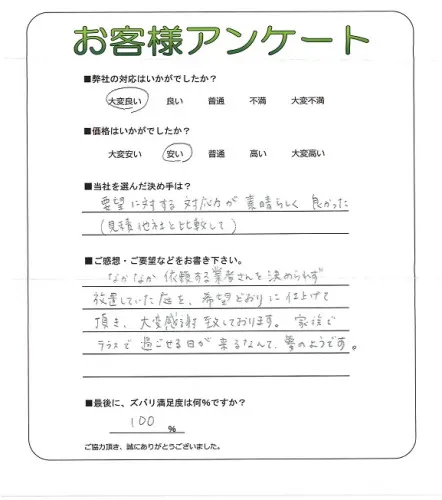 お客様アンケート
■弊社の対応はいかがでしたか?
大変良い 良い 普通 不満 大変不満
■価格はいかがでしたか?
大変安い 安い 普通 高い 大変高い
■当社を選んだ決め手は?
要望に対する対応力が素晴らしく良かった
(見積他社と比較して)
■ご感想・ご要望などをお書き下さい。
なかなか依頼する業者さんを決められず
放置していた庭を、希望どおりに仕上げて
頂き、大変感謝致しております。家族で
テラスで過ごせる日が来るなんて、夢のようです。
■最後に、ズバリ満足度は何%ですか?
100 %
ご協力頂き、誠にありがとうございました。